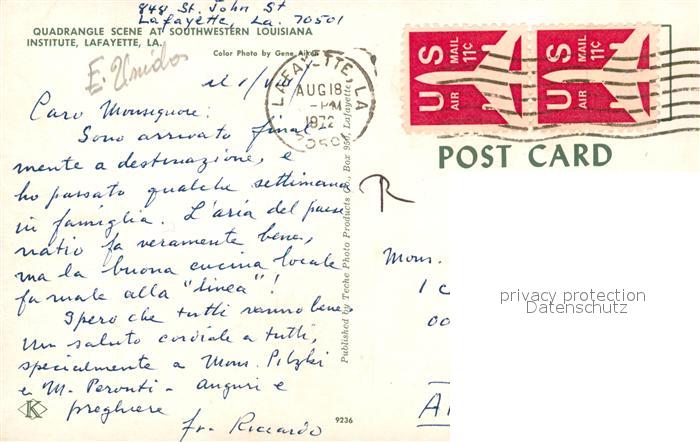 848 St. John St
Lafayette, La. 70501
QUADRANGLE SCENE AT SOUTHWESTERN LOUISIANA
INSTITUTE, LAFAYETTE, LA.
Color Photo by Gene Aiken
E. Unidos
Caro Monsignore:
Sono arrivato final-
mente a destinazione, e
ho passato qualche settimana
in famiglia. L'aria del paese
natio fa veramente bene,
ma la buona cucina locale
fa male alla "linea"!
Spero che tutti vanno bene.
Un saluto cordiale a tutti,
specialmente a Mons.
e M. Peronti - auguri e
preghiere
fr. Riccardo
K
9236
Published by Teche Photo Products Co., Box 956, Lafayette
LAFAYETTE, LA
AUG 18
-PM
1972
US AIR MAIL 11¢
US AIR MAIL 11¢
POST CARD
R
Mons.
privacy protection
Datenschutz